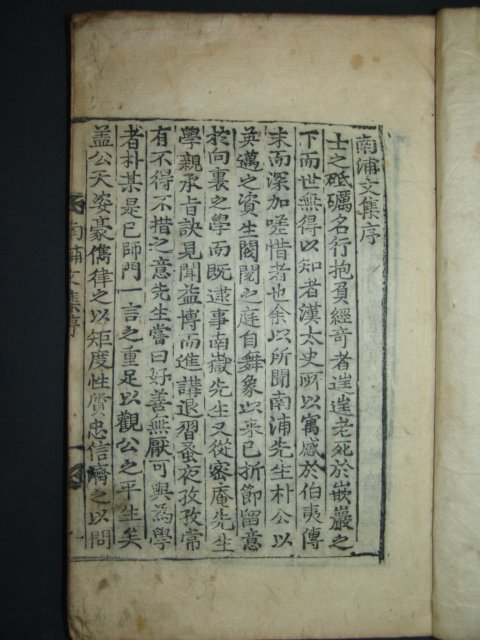 南浦文集序
士之砥礪名行抱負經奇者迬迬老死於嵌巖之
下而世無得以知者漢太史所以寓感於伯夷傳
末而深加嗟惜者也余以所聞南浦先生朴公以
英邁之資生閥閱之庭自舞象以來已折節留意
於向裏之學而旣逮事南嶽先生又從密庵先生
學親承旨訣見聞益博而進講退習蚤夜孜孜常
有不得不措之意先生嘗曰好善無厭可與爲學
者朴某是已師門一言之重足以觀公之平生矣
盖公天姿豪儁律之以矩度性質忠信濟之以問
南浦文集序